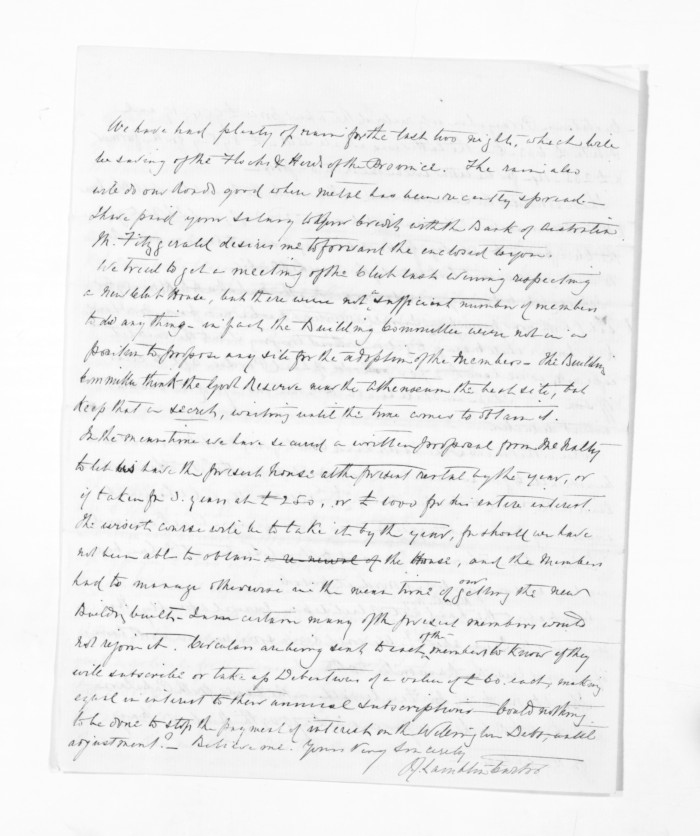 We have had plenty of rain for the last two nights, which will
be saving of the Flocks & Herds of the Province. The rain also
will do our roads good where metal has been recently spread.—
I have paid your salary to your credit with the Bank of Australia.
Mr. Fitzgerald desires me to forward the enclosed to you.
We tried to get a meeting of the Club last evening respecting
a new Club House, but there were not sufficient number of members
to do anything — in fact the Building Committee were not in a
position to propose any site for the adoption of the members — The Building
Committee think the Govt Reserve near the Athenaeum the best site, but
keep that a secret, waiting until the time comes to obtain it.
In the meantime we have secured a written proposal from McNally
to let us have the present house at the present rental by the year, or
if taken for 3. years at £250, or £1000 for his entire interest.
The wisest course will be to take it by the year, for should we have
not been able to obtain a renewal of the House, and the Members
had to manage otherwise in the mean time of our getting the new
Building built — I am certain many of the present members would
not rejoin it. Circulars are being sent to each of the members to know if they
will subscribe or take up Debentures of a value of £60. each, making
equal in interest to their annual subscriptions — Could nothing
be done to stop the payment of interest on the Wellington Debt, until
adjustment? — Believe me. Yours Very Sincerely